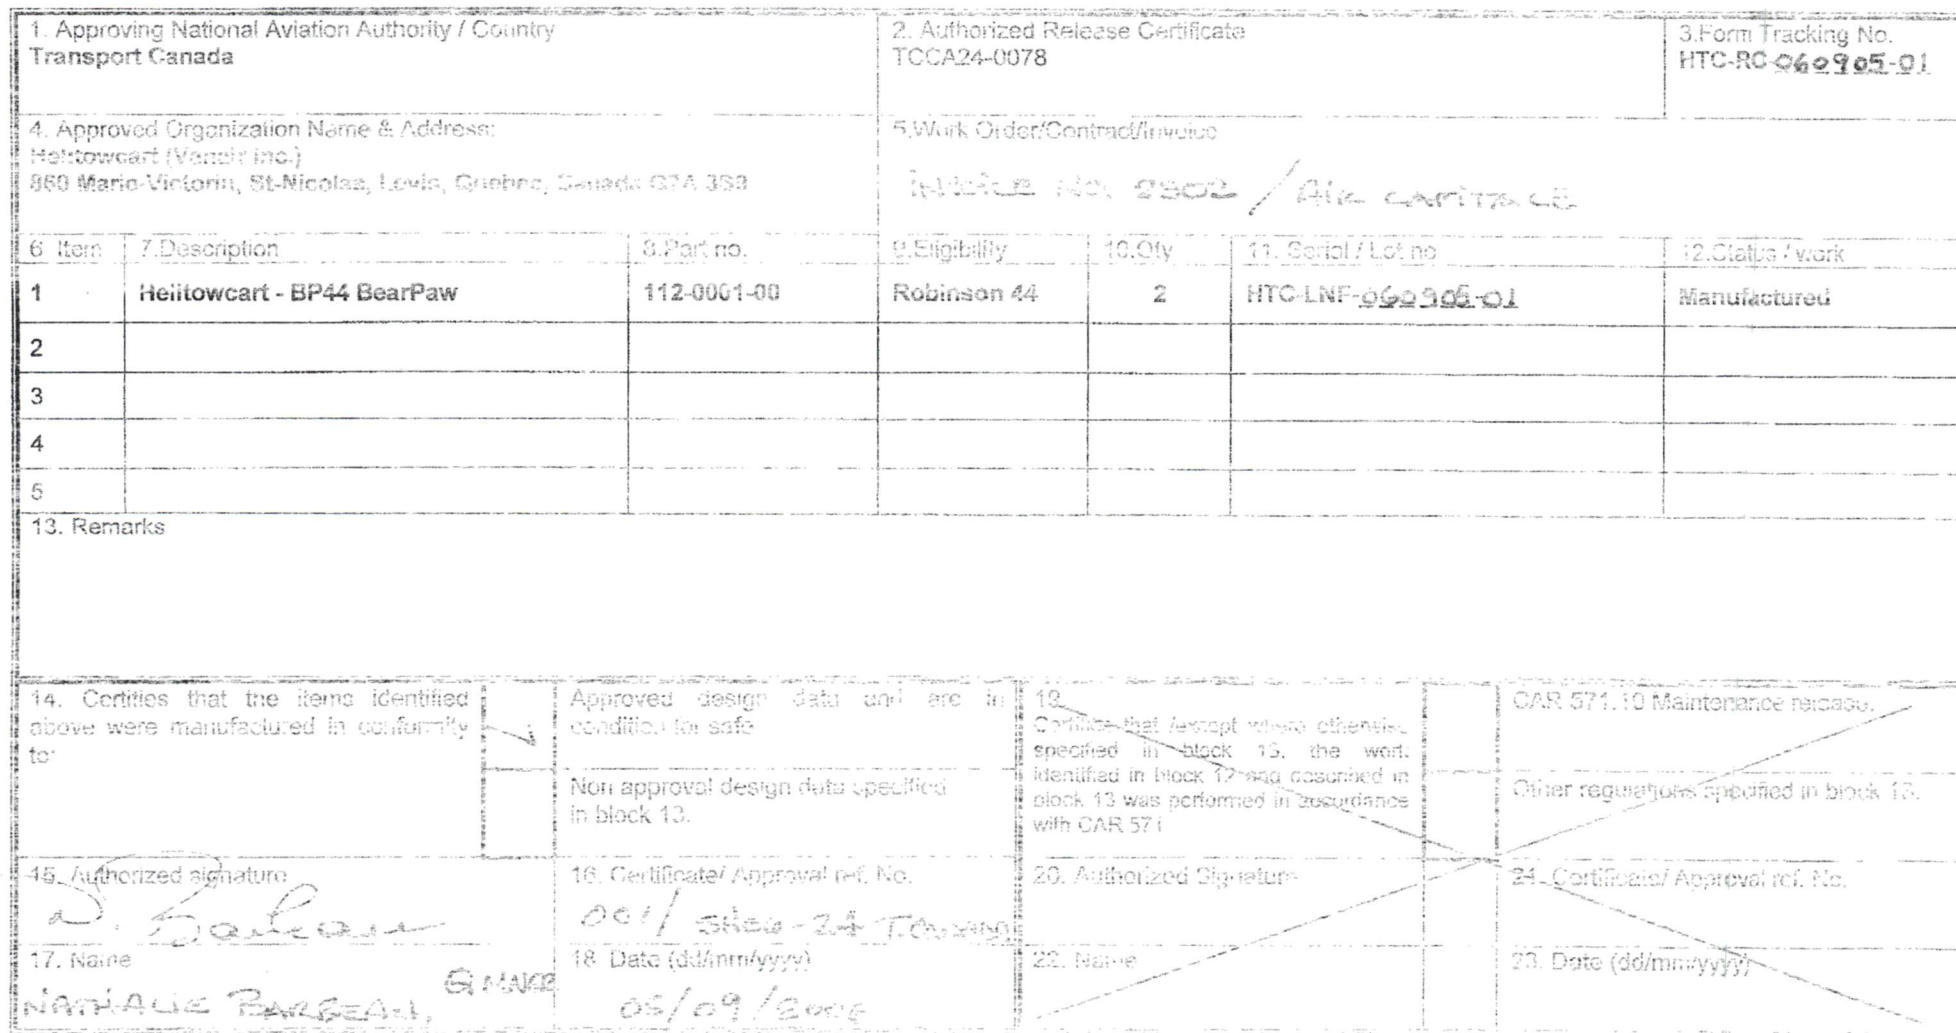 1. Approving National Aviation Authority / Country
Transport Canada
2. Authorized Release Certificate
TCCA24-0078
3.Form Tracking No.
HTC-RC-060905-01
4. Approved Organization Name & Address:
Helitowcart (Vanair inc.)
860 Marie-Victorin, St-Nicolas, Levis, Quebec, Canada G7A 3S9
5.Work Order/Contract/Invoice
INVOICE NO. 2302 / AIR CAPITALE
6 Item 7.Description 8.Part no. 9.Eligibility 10.Qty 11. Serial / Lot no 12.Status / work
1 Helitowcart - BP44 BearPaw 112-0001-00 Robinson 44 2 HTC-LNF-060905-01 Manufactured
2
3
4
5
13. Remarks
14. Certifies that the items identified
above were manufactured in conformity
to:
Approved design data and are in
condition for safe
Non approval design data specified
in block 13.
19.
Certifies that /except where otherwise
specified in block 13, the work
identified in block 12 and described in
block 13 was performed in accordance
with CAR 571
CAR 571.10 Maintenance release.
Other regulations specified in block 13.
15. Authorized signature
16. Certificate/ Approval ref. No.
001/
20. Authorized Signature
21. Certificate/ Approval ref. No.
17. Name
NATHALIE BARBEAU,
18. Date (dd/mm/yyyy)
05/09/2006
22. Name
23. Date (dd/mm/yyyy)